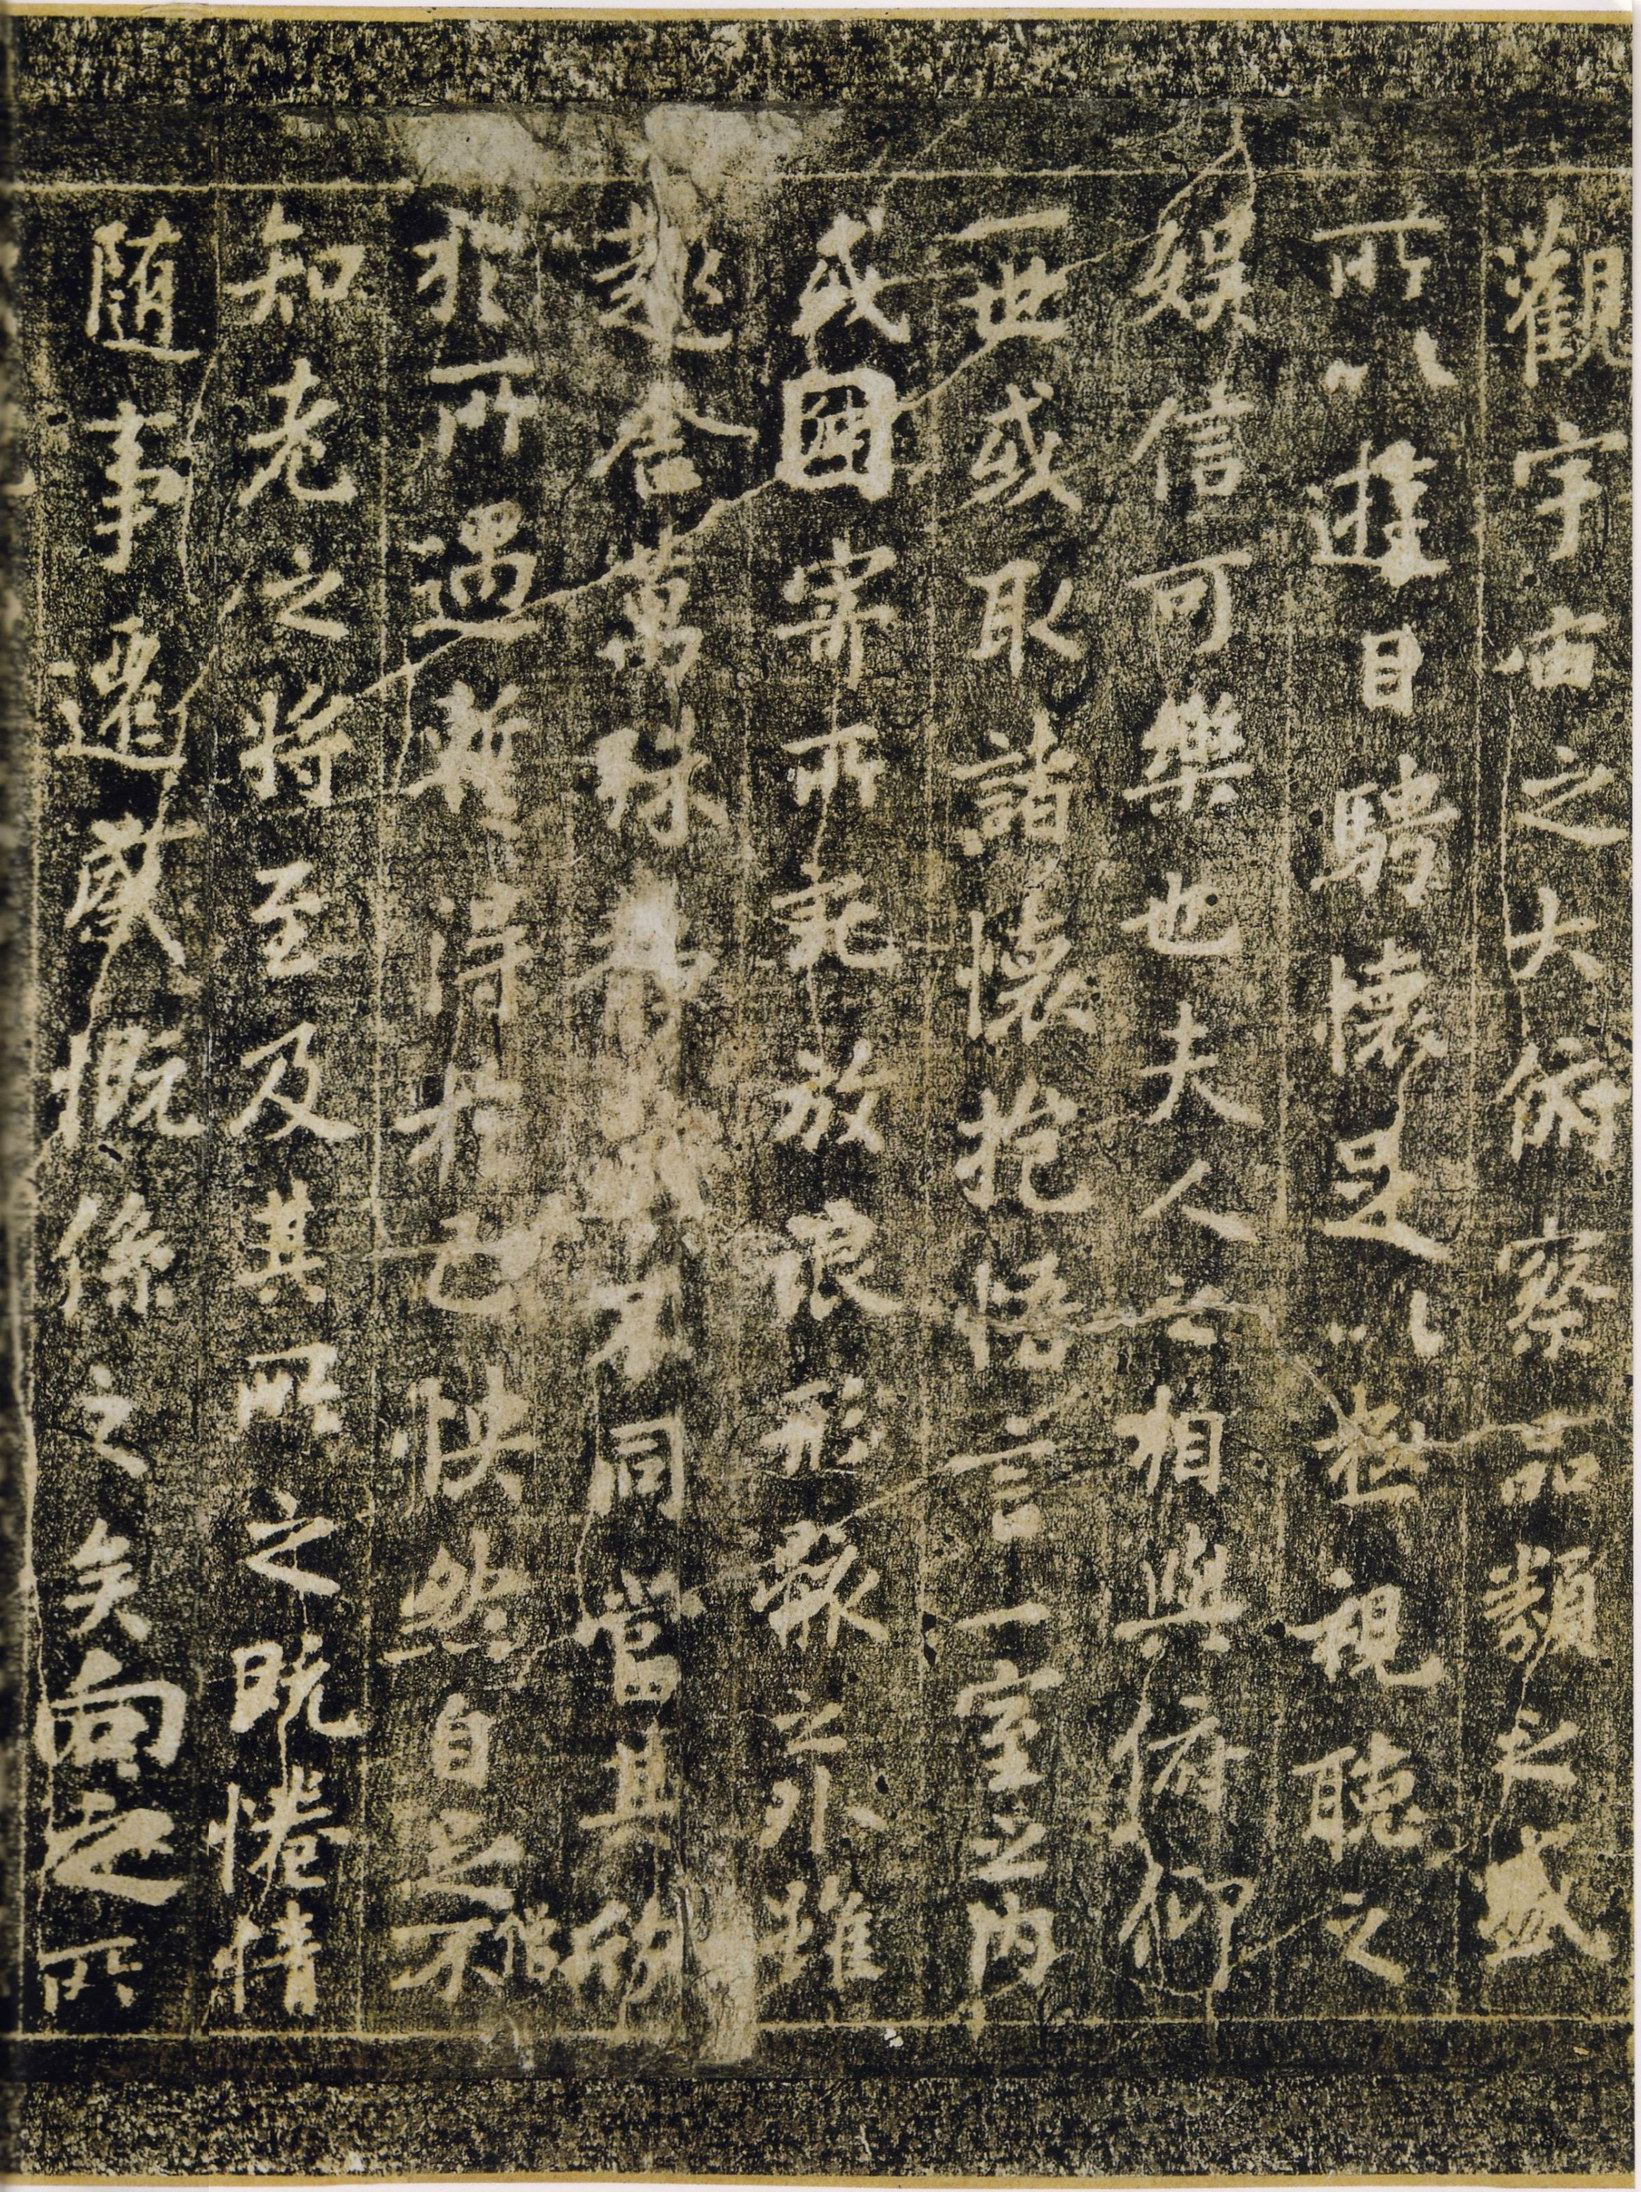 觀宇宙之大俯察品類之盛
所以遊目騁懷足以極視聽之
娛信可樂也夫人之相與俯仰
一世或取諸懷抱悟言一室之內
或因寄所託放浪形骸之外雖
趣舍萬殊靜躁不同當其欣
僧
於所遇暫得於己怏然自足不
知老之將至及其所之既惓情
隨事遷感慨係之矣向之所